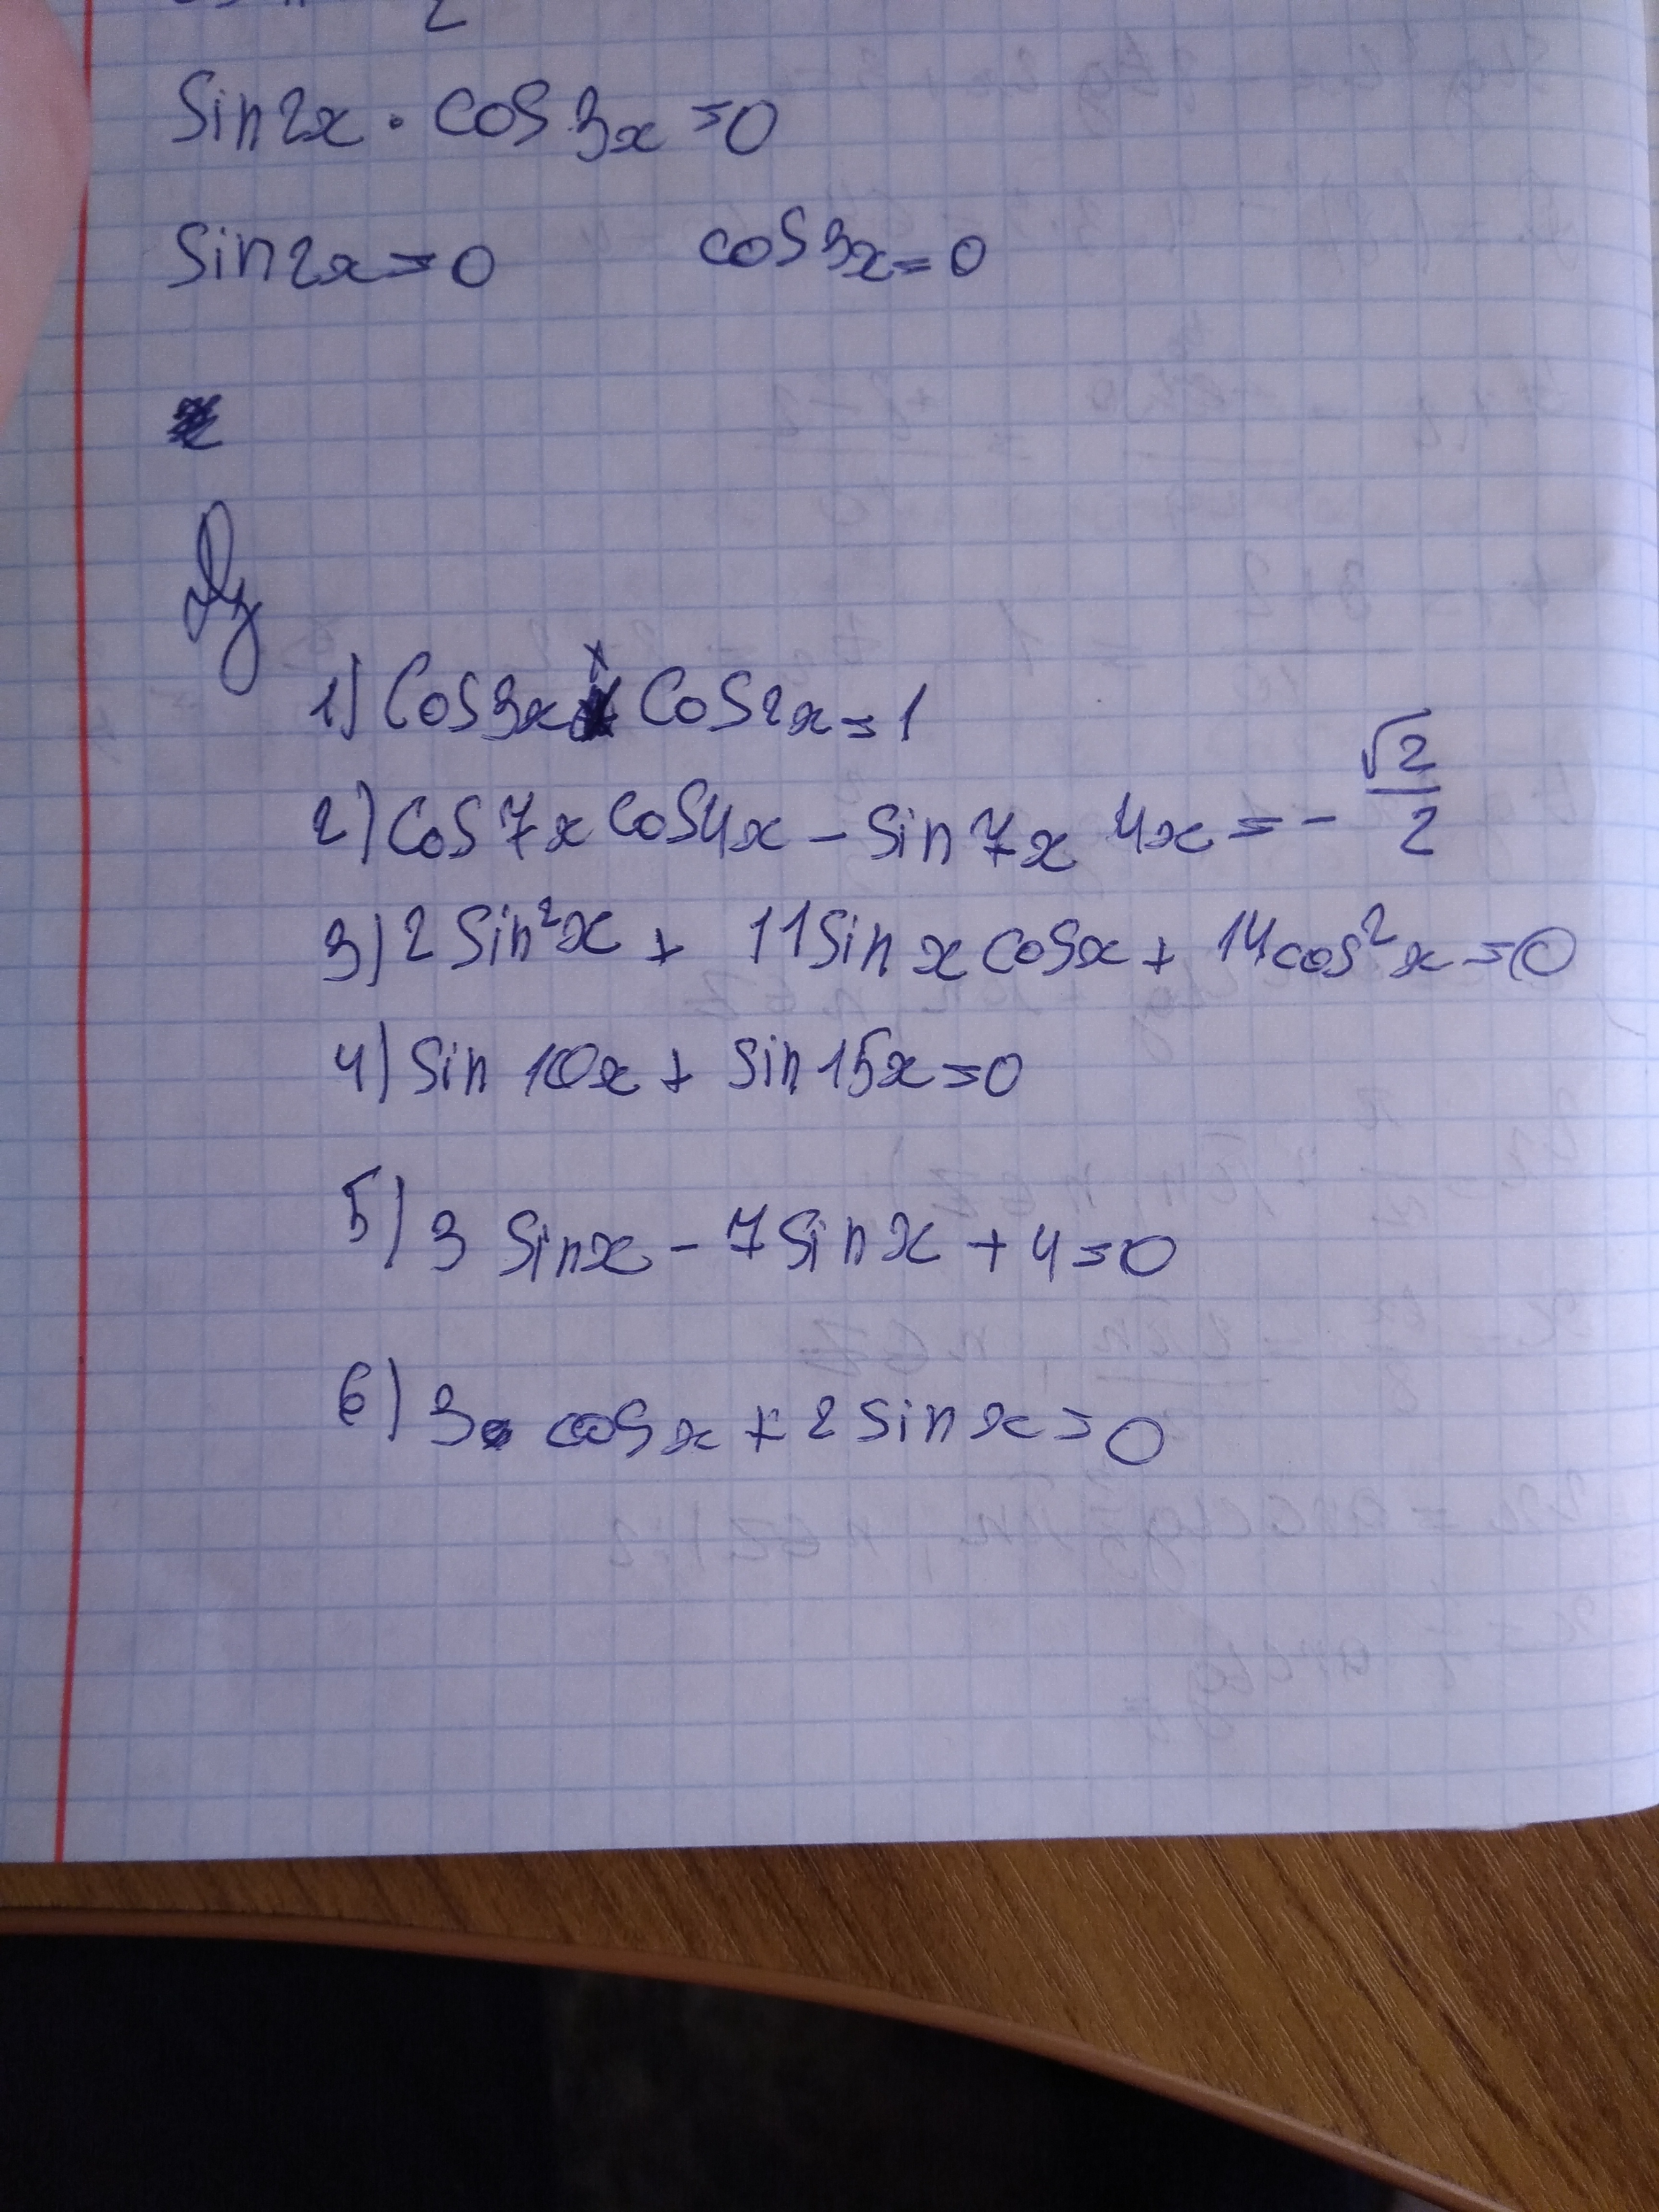 Sin2x · cos3x = 0
Sin2x = 0 cos3x = 0
Дз
1) Cos3x Cos2x = 1
2) Cos7x cos4x - sin7x 4x = - √2/2
3) 2 Sin²x + 11 Sin x cosx + 14 cos²x = 0
4) Sin 10x + sin 15x = 0
5) 3 Sinx - 7 Sin x + 4 = 0
6) 3 cosx + 2 sin x = 0